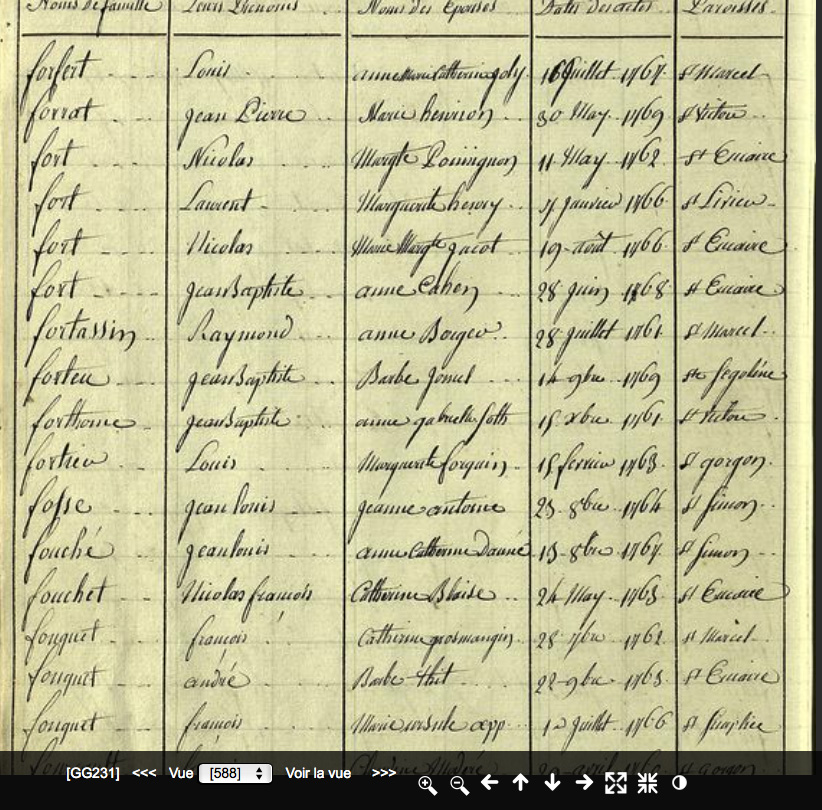 Noms de famille Leurs Prénoms Noms des Epouses Dates des actes Paroisses.
forfert Louis anne Marie Catherine joly 16 juillet 1767. st Marcel
forrat jean Pierre Marie henrion 30 May. 1769 st Victor
fort Nicolas Margte Poinsignon 11 May 1762 st Eucaire
fort Laurent Marguerite henry janvier 1766 st Livier
fort Nicolas Marie Margte jacot 19 août 1766 st Eucaire
fort jean Baptiste anne Cahen 28 juin 1768 st Eucaire
fortassin Raymond anne 28 juillet 1761 st Marcel
forteu jean Baptiste Barbe 14 9bre 1769 ste Segolène
forthome jean Baptiste anne gabrielle 15 xbre 1761 st Victor
fortier Louis Marguerite forquin 15 fevrier 1763 st gorgon
fosse jean louis jeanne antoine 23 8bre 1764 st Simon
fouché jean louis anne Catherine Danné 13 8bre 1767 st Simon
fouchet Nicolas françois Catherine Blaise 24 May 1763 st Eucaire
fouquet françois Catherine grosmangin 28 7bre 1762 st Marcel
fouquet andré Barbe 22 9bre 1763 st Eucaire
fouquet françois Marie ursule juillet 1766 st Simplice
avril st gorgon
[GG231] <<< Vue [588] Voir la vue >>>